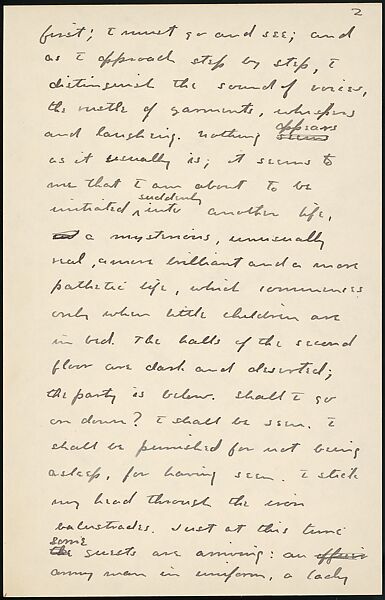 2
first; I must go and see; and
as I approach step by step, I
distinguish the sound of voices,
the rustle of garments, whispers
and laughing. Nothing appears
as it usually is; it seems to
me that I am about to be
initiated suddenly into another life,
a mysterious, unusually
real, a more brilliant and a more
pathetic life, which commences
only when little children are
in bed. The halls of the second
floor are dark and deserted;
the party is below. Shall I go
on down? I shall be seen. I
shall be punished for not being
asleep, for having seen. I stick
my head through the iron
balustrades. Just at this time
some guests are arriving: an
army man in uniform, a lady